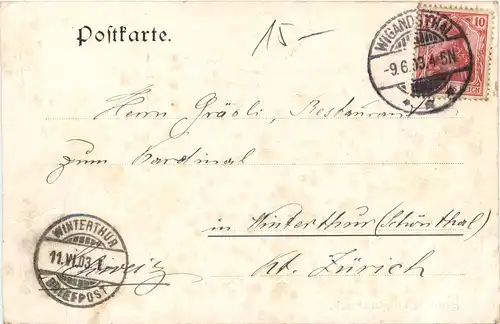 Postkarte.
15-
WIGANDSTHAL
-9.6.03.4-5N.
10
Herrn Gräoli, Restaurant
zum Kardinal
in Winterthur (Schönthal)
WINTERTHUR
11.VI.03.
BRIEFPOST
Schweiz
Kt. Zürich